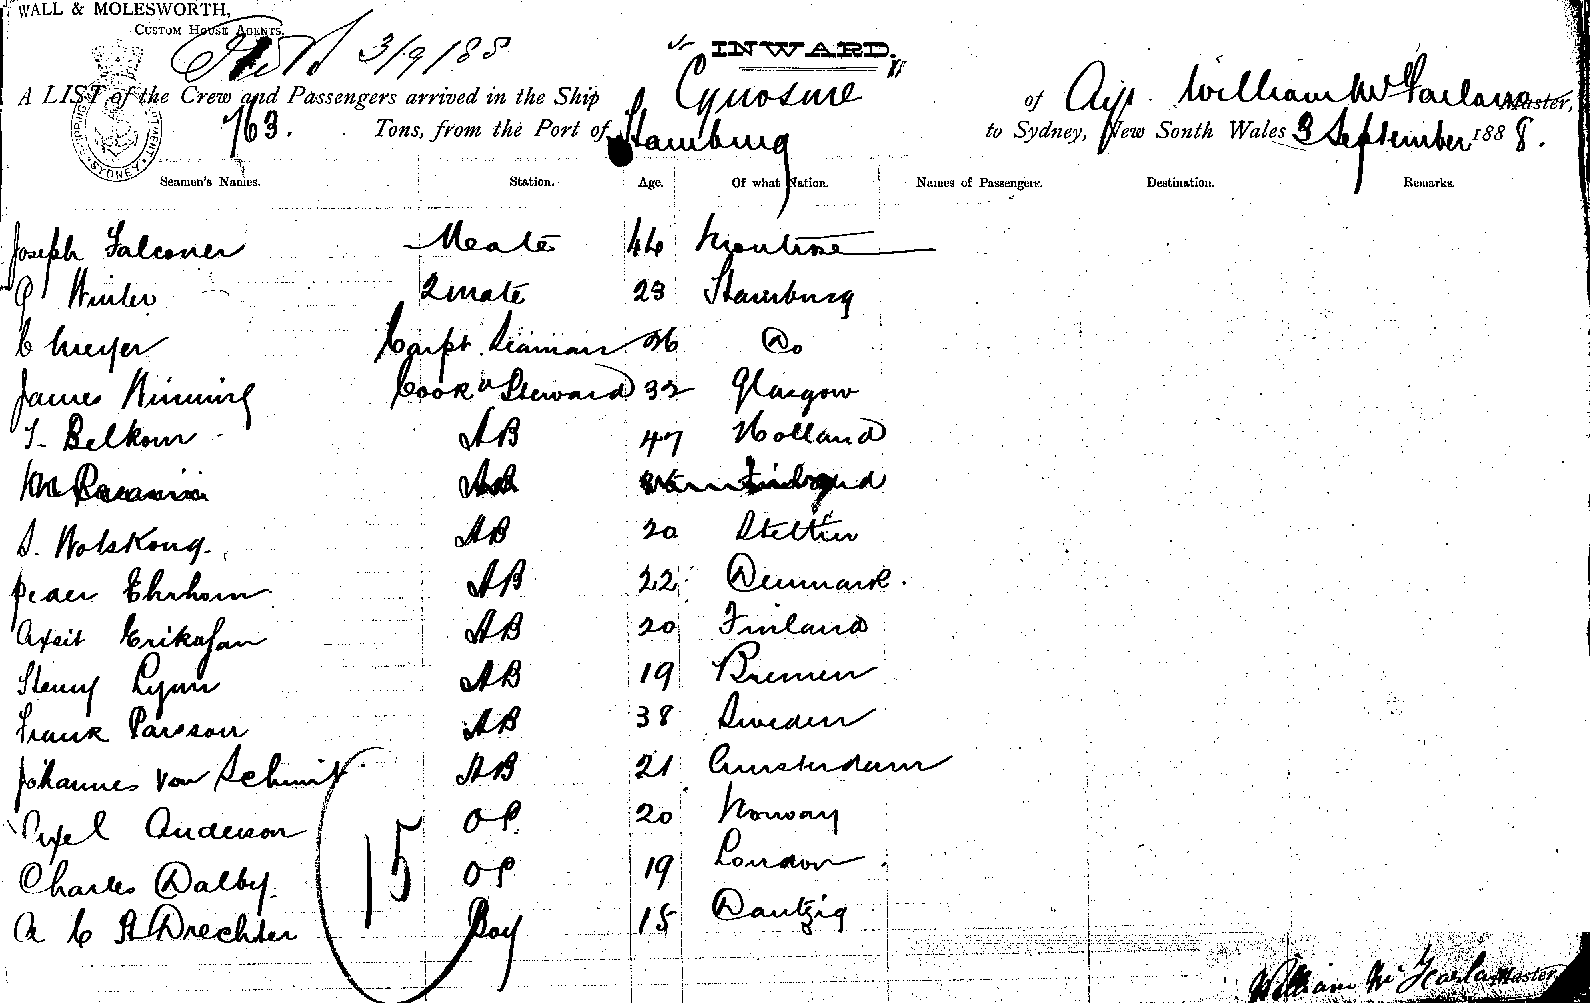 WALL & MOLESWORTH,
CUSTOM HOUSE AGENTS.
3/9/88
INWARD.
A LIST of the Crew and Passengers arrived in the Ship Cynosure of Ayr. William McFarlane Master,
763. Tons, from the Port of Hamburg to Sydney, New South Wales 3 September 1888.
Seamen's Names. Station. Age. Of what Nation. Names of Passengers. Destination. Remarks.
Joseph Falconer Meate 44 Montrose
Winter 2 Mate 23 Hamburg
C Meyer Carpt. Seaman 26 Do
James Winning Cook & Steward 32 Glasgow
T. Belkom AB 47 Holland
AB
S. Wolskong. AB 20 Stettin
Peder Ehrhorn AB 22 Denmark.
Axsit Erikssan AB 20 Finland
Henry Lynn AB 19 Bremen
Frank Parsson AB 38 Sweden
Johannes van Schmit AB 21 Amsterdam
Axel Anderson OS. 20 Norway
Charles Dalby. OS 19 London
A C H Drechler Boy 15 Dantzig
15
William McFarlane Master
SYDNEY